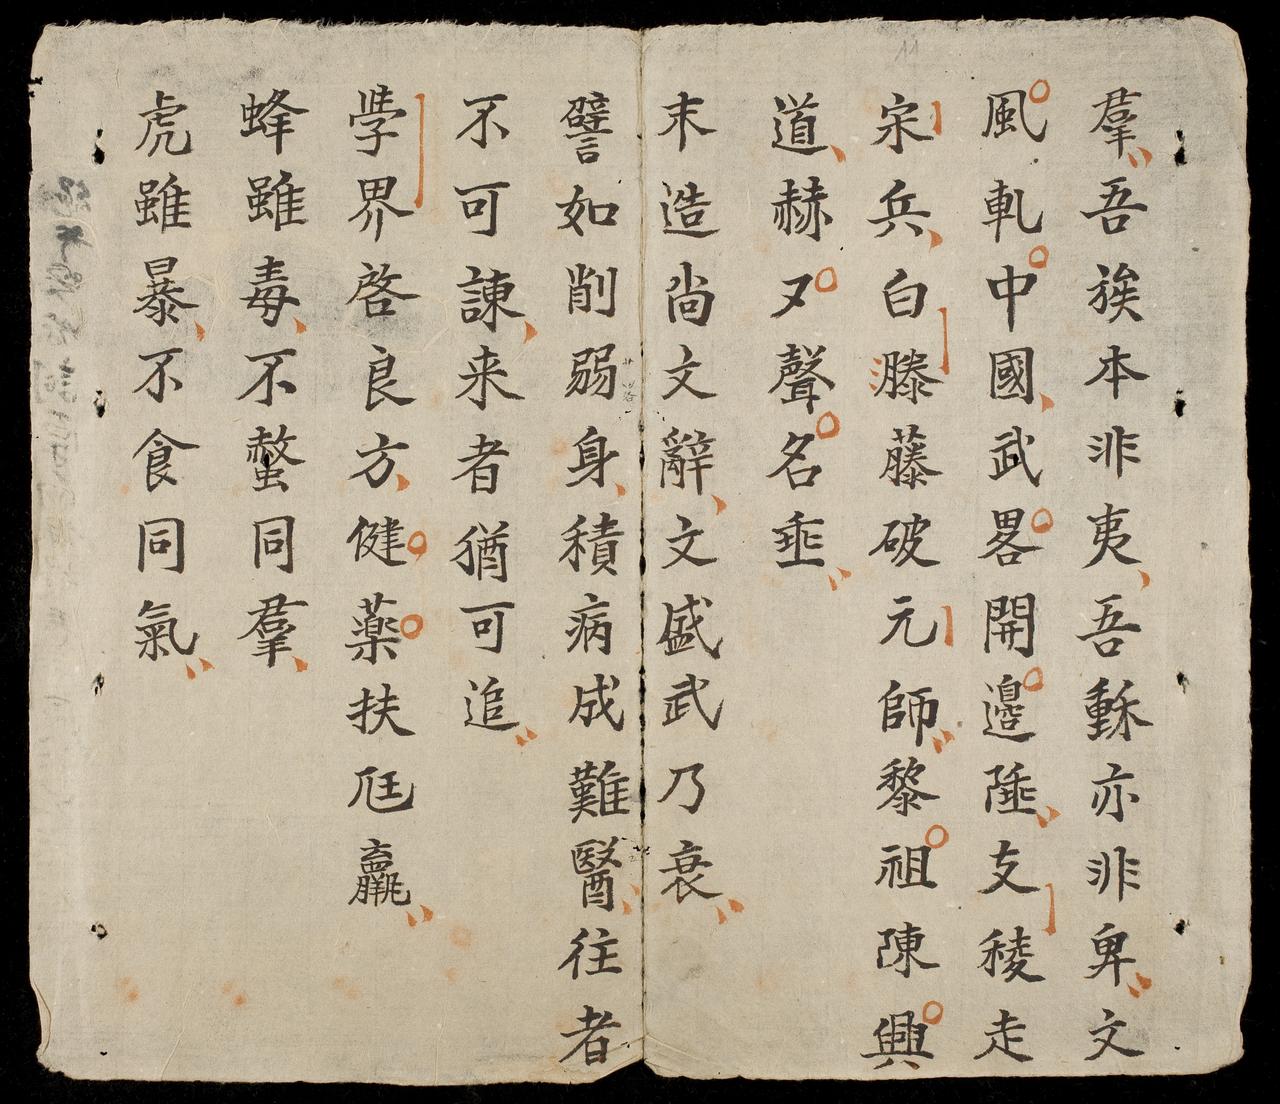 羣吾族本非夷吾種亦非卑文
風軌中國武畧開邊陲支稜走
宋兵白滕藤破元師黎祖陳興
道赫又聲名垂
末造尚文辭文盛武乃衰
譬如削弱身積病成難醫往者
不可諫来者猶可追
學界啓良方健藥扶尫羸
蜂雖毒不螫同羣
虎雖暴不食同氣